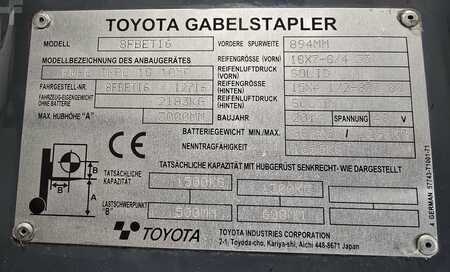 TOYOTA GABELSTAPLER
MODELL 8FBET16 VORDERE SPURWEITE 894MM
MODELLBEZEICHNUNG DES ANBAUGERÄTES REIFENGRÖSSE (VORN) 18X7-8/4.33
REIFENLUFTDRUCK (VORN) SOLID
FAHRGESTELL-NR. 8FBET16 12716 REIFENGRÖSSE (HINTEN)
FAHRZEUG-EIGENGEWICHT OHNE BATTERIE 2183KG REIFENLUFTDRUCK (HINTEN)
MAX. HUBHÖHE "A" MM BAUJAHR SPANNUNG V
BATTERIEGEWICHT MIN./MAX.
NENNTRAGFÄHIGKEIT
CE
TATSÄCHLICHE KAPAZITÄT MIT HUBGERÜST SENKRECHT- WIE DARGESTELLT
TATSÄCHLICHE KAPAZITÄT KG KG
B
B
A
LASTSCHWERPUNKT "B" 500MM 600MM
TOYOTA
TOYOTA INDUSTRIES CORPORATION
2-1, Toyoda-cho, Kariya-shi, Aichi 448-8671 Japan
GERMAN 57743-T1001-71